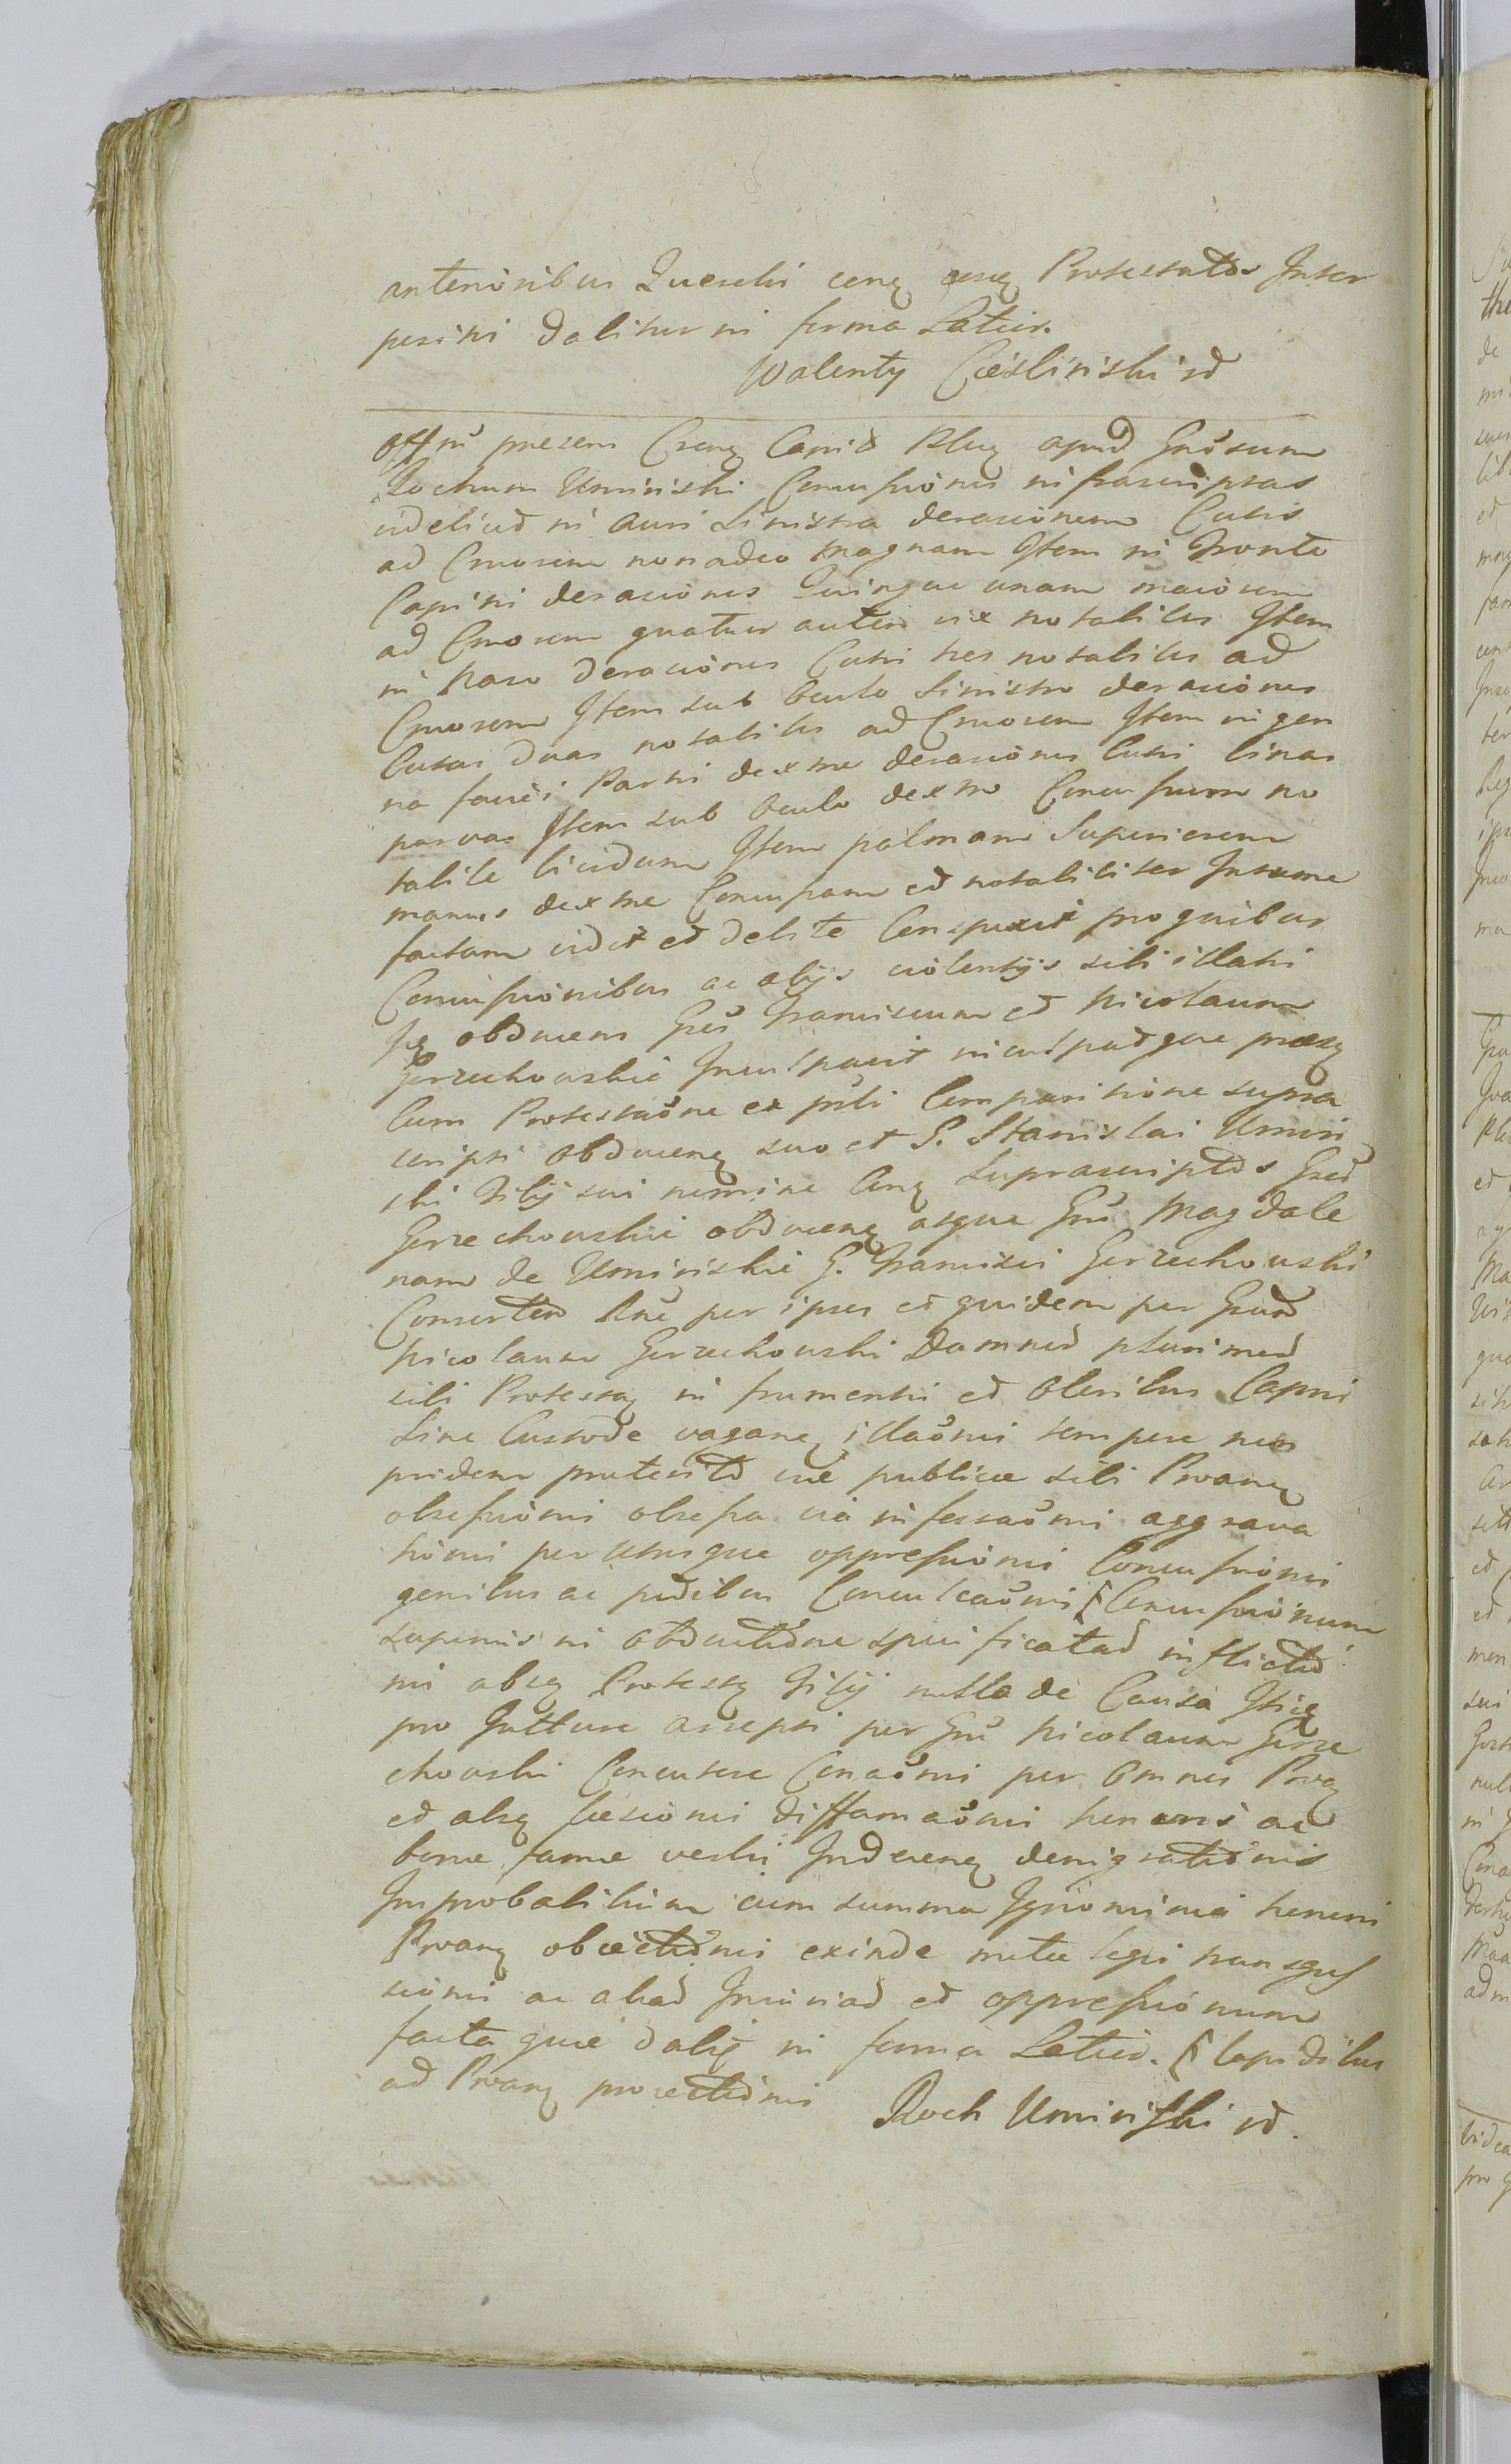 anterioribus Querelis cenq esuq Protestatõs Inter
positi dabitur in forma Latior.
Walenty Cieslinski id
Offm̃ presens Crenq Capit Pluq apud Gnõsum
Rochum Uminiski Concussiones infrascriptas
videlicet in Auri Sinistra derasionem Cutis
ad Cruorem non adeo magnam Item in Fronte
Capitis derasiones Quinque unam maiorem
ad Cruorem quatuor autem vix notabiles Item
in Naso derasiones Cutis tres notabiles ad
Cruorem Item sub Oculo Sinistro derasiones
Cutas duas notabiles ad Cruorem Item in gen
na faciei Partis dextrae derasiones Cutis binas
parvas Item sub Oculo dextro Concussum no
tabile lividum Item palmam Superiorem
manus dextrae Concussam et notabiliter Intume
factam vidit et debite Conspexit pro quibus
Concussionibus ac alijs violentijs sibi illatis
Iq obducens Gños Franciscum et Nicolaum
Gerzechowskie Inculpavit inculpatque praesq
Cum Protestaõne ex pñti Comparitione supra
scripti obducenq suo et G. Stanislai Umin
ski Filij sui nomine Cirq Suprascriptos Gños
Gerzechowskie obducenq atque Gñ Magdale
nam de Uminiskie G. Francisci Gerzechowski
Consortem Rñe per ipsos et quidem per Gñum
Nicolaum Gerzechowski Damnor plurimor
sibi Protestaq in frumentis et Oleribus Capri
Sine Custode vaganq illaõnis tempore non
pridem praeterito viae publicae sibi Proanq
obsessionis obsessa via infestaõnis aggrava
tionis per utrisque oppressionis Concussionis
genibus ac pedibus Conculcaõnis Concussionum
superius in Obductione specificatar inflictio
nis absq Protestq Filij nulla de Causa Itiq
pro Gutture arrepti per Gñ Nicolaum Gerze
chowski Concutere Conaõnis per Omnes Proq
et absq laesionis diffamaõnis honoris ac
bonae famae verbis Indecenq denigrationis
Improbabilium cum summa Ignominia honoris
Proanq obiectionis exinde metae legis transgres
sionis ac aliar Iniuriar et oppressionum
factaque dabiq in forma Latior. lapidibus
ad Proanq proiectionis Roch Uminiski id.